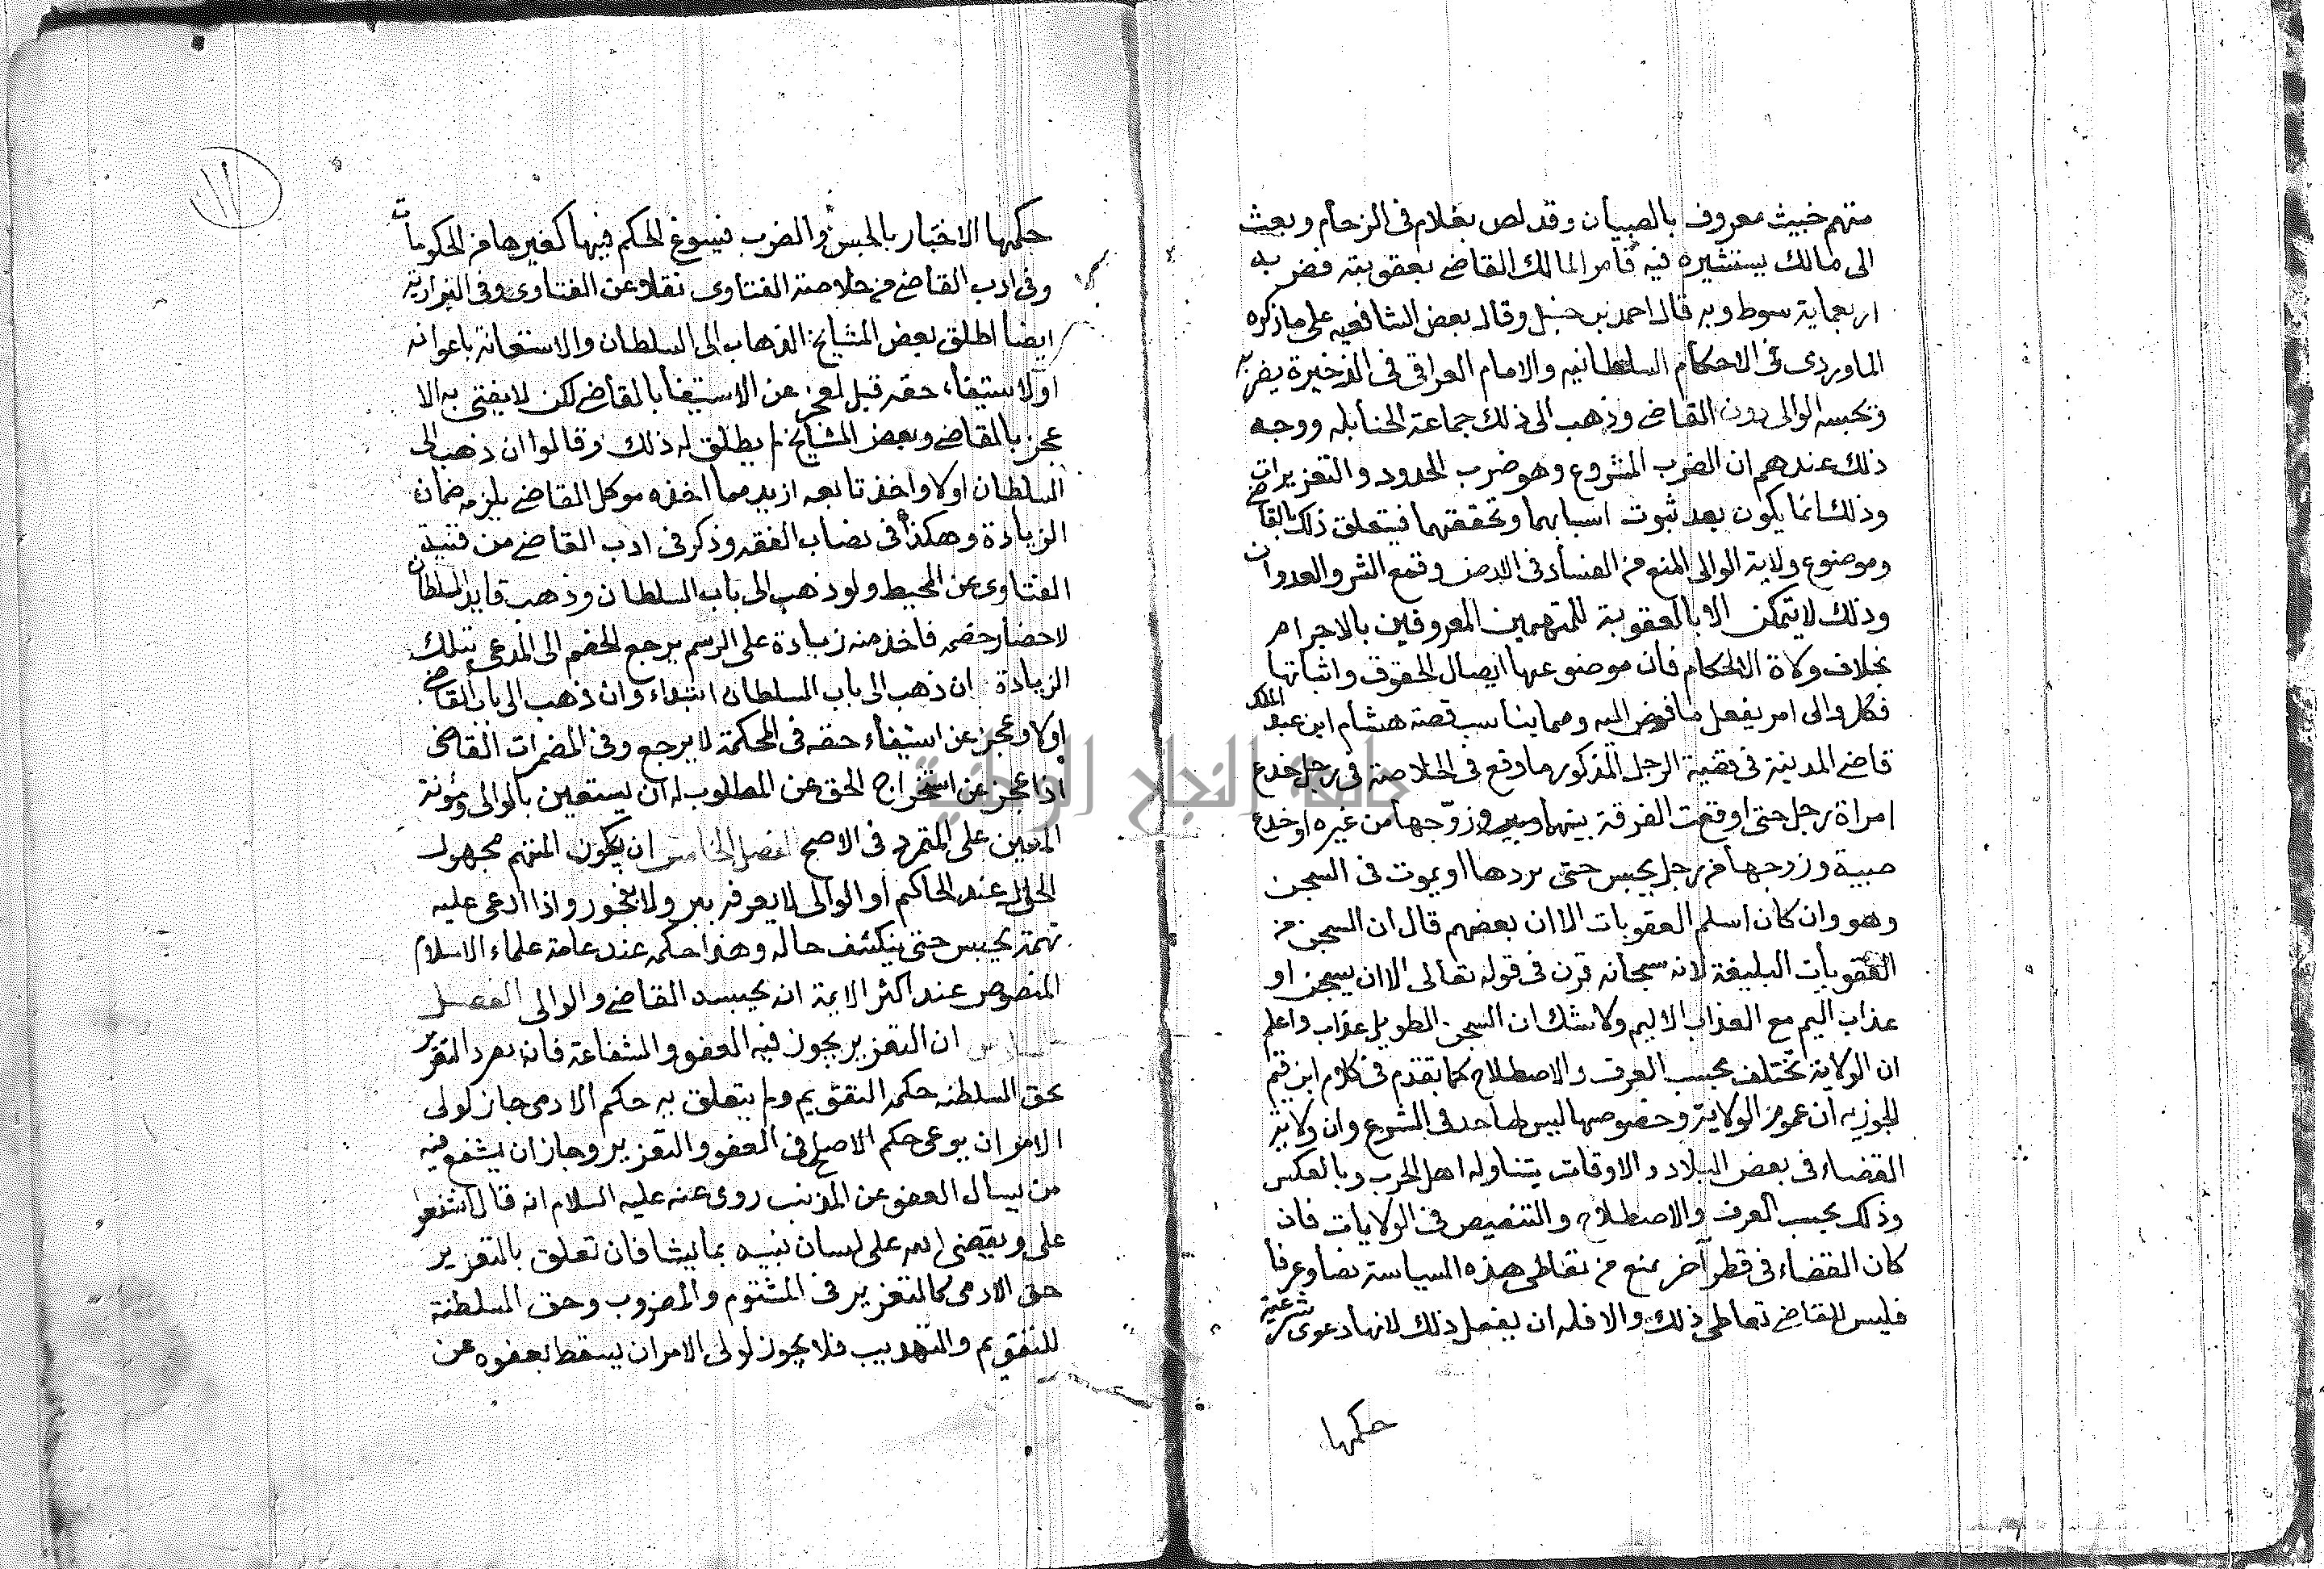 متهم خبيث معروف بالصبيان وقد لص بغلام فى الزحام وبعث
الى مالك يستشيره فيه فامر المالك القاضى بعقوبته فضربه
اربعماية سوط وبه قال احمد بن حنبل وقال بعض الشافعيه على ما ذكره
الماوردى فى الاحكام السلطانيه والامام العراقى فى الذخيرة يضربه
ويحبسه الوالى دون القاضى وذهب الى ذلك جماعة الحنابله ووجه
ذلك عندهم ان الضرب المشروع وهو ضرب الحدود والتعزيرات
وذلك انما يكون بعد ثبوت اسبابهما وتحققهما فيتعلق ذلك بالقاضى
وموضوع ولاية الوالى المنع من الفساد فى الارض وقمع الشر والعدوان
وذلك لا يتمكن الا بالعقوبة للمتهمين المعروفين بالاجرام
بخلاف ولاة الاحكام فان موضوعها ايصال الحقوق واثباتها
فكل والى امر يفعل ما فوض اليه ومما يناسب قصة هشام ابن عبد الملك
قاضى المدينة فى قضية الرجل المذكور ما وقع فى الخلاصة فى رجل خدع
امراة رجل حتى اوقعت الفرقة بينهما وزوجها من غيره او خدع
صبية وزوجها من رجل يحبس حتى يردها او يموت فى السجن
وهو وان كان اسلم العقوبات الا ان بعضهم قال ان السجن من
العقوبات البليغة لانه سبحانه قرن فى قوله تعالى الا ان يسجن او
عذاب اليم مع العذاب الاليم ولا شك ان السجن الطويل عذاب واعلم
ان الولاية تختلف بحسب العرف والاصطلاح كما تقدم فى كلام ابن قيم
الجوزيه ان عموم الولاية وخصوصها ليس لها حد فى الشرع وان ولاية
القضاء فى بعض البلاد والاوقات يتناوله اهل الحرب وبالعكس
وذلك بحسب العرف والاصطلاح والتنصيص فى الولايات فان
كان القضاء فى قطر آخر يمنع من تعاطى هذه السياسة نصا وعرفا
فليس للقاضى تعاطى ذلك والا فله ان يفعل ذلك لانها دعوى شرعية
حكمها
حكمها الاختبار بالحبس والضرب فيسوغ الحكم فيها كغيرها من الحكومات
وفى ادب القاضى من خلاصة الفتاوى نقلا عن الفتاوى وفى البزازية
ايضا اطلق بعض المشايخ الذهاب الى السلطان والاستعانة باعوانه
اولا لاستيفاء حقه قبل لعجز عن الاستيفا بالقاضى لكن لا يفتى به الا
عجز بالقاضى وبعض المشايخ لم يطلق له ذلك وقالوا ان ذهب الى
السلطان اولا واخذ تابعه ازيد مما اخذه موكل القاضى يلزمه ضمان
الزيادة وهكذا فى نصاب الفقه وذكر فى ادب القاضى من قنية
الفتاوى عن المحيط ولو ذهب الى باب السلطان وذهب قايد السلطان
لاحضار خصمه فاخذ منه زيادة على الرسم يرجع الخصم الى المدعى بتلك
الزيادة ان ذهب الى باب السلطان ابتداء وان ذهب الى باب القاضى
اولا وعجز عن استيفاء حقه فى المحكمة لا يرجع وفى المضمرات القاضى
اذا عجز عن استخراج الحق من المطلوب له ان يستعين بالوالى ومؤنة
المعين على المتمرد فى الاصح الفصل الخامس ان يكون المتهم مجهول
الحال عند الحاكم او الوالى لا يعرف ببر ولا بفجور واذا ادعى عليه
تهمة يحبس حتى ينكشف حاله وهذا حكمه عند عامة علماء الاسلام
المنصوص عند اكثر الايمة انه يحبسه القاضى والوالى الفصل
السادس ان التعزير يجوز فيه العفو والشفاعة فانه
بحق السلطنه حكمه التقويم ولم يتعلق به حكم الادمى جاز كولى
الامر ان يوعى حكم الاصلح فى العفو والتعزير وجاز ان يشفع فيه
من يسال العفو عن المذنب روى عنه عليه السلام انه قال اشفعوا
على ويقضى الله على لسان نبيه بما يشا فان تعلق بالتعزير
حق الادمى كالتعزير فى المشتوم والمضروب وحق السلطنة
للتقويم والتهديب فلا يجوز لولى الامر ان يسقط بعفوه عن
جامعة النجاح الوطنية